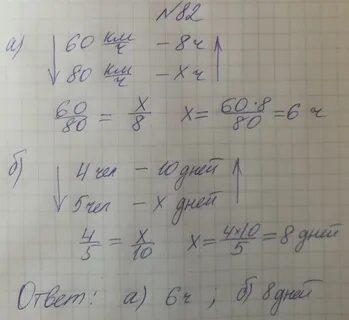 №82
а) ↓ 60 км/ч – 8 ч ↑
80 км/ч – x ч
60/80 = x/8 x = 60·8/80 = 6 ч
б) ↓ 4 чел – 10 дней ↑
5 чел – x дней
4/5 = x/10 x = 4×10/5 = 8 дней
Ответ: а) 6 ч ; б) 8 дней